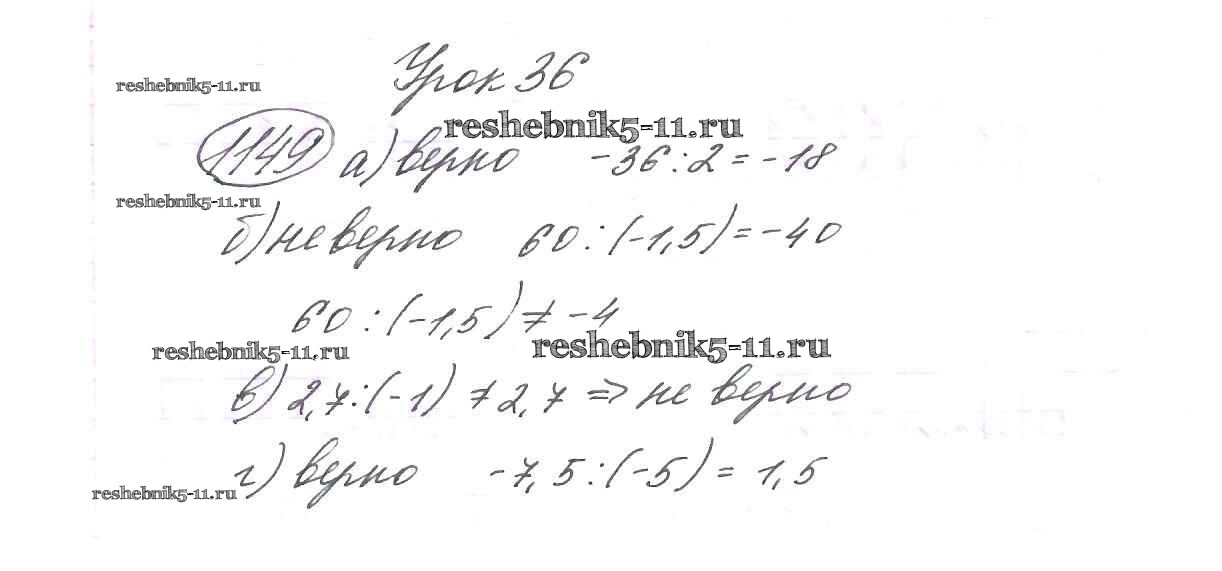 Урок 36
reshebnik5-11.ru
reshebnik5-11.ru
1149 а) верно -36:2=-18
reshebnik5-11.ru
б) не верно 60:(-1,5)=-40
60:(-1,5)≠-4
reshebnik5-11.ru
reshebnik5-11.ru
в) 2,7:(-1)≠2,7 => не верно
г) верно -7,5:(-5)=1,5
reshebnik5-11.ru